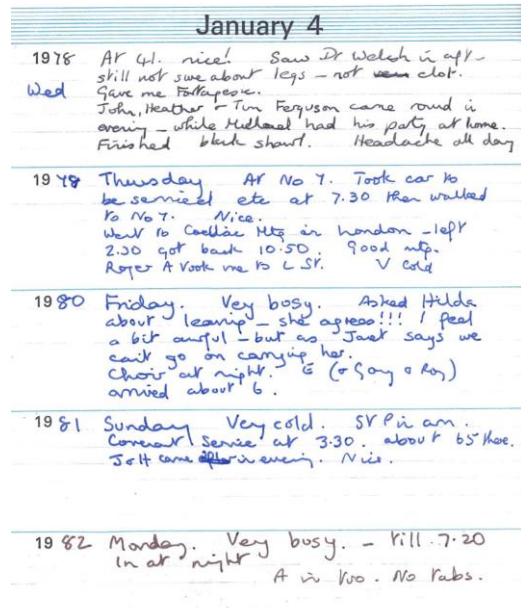 January 4
1978 At 41. nice! Saw Dr Welch in aft-
Wed still not sure about legs – not clot.
Gave me Fortagesic.
John, Heather + Tim Ferguson came round in
evening – while Michael had his party at home.
Finished black shawl. Headache all day
1979 Thursday At No 7. Took car to
be serviced etc at 7.30 then walked
to No 7. Nice.
Went to Coeliac Mtg in London – left
2.30 got back 10.50. Good mtg.
Roger A took me to L St. V cold
1980 Friday. Very busy. Asked Hilda
about leaving – she agrees!!! I feel
a bit awful – but as Janet says we
can't go on carrying her.
Choir at night. E (+ Gary + Roy)
arrived about 6.
1981 Sunday Very cold. St P in am.
Covenant Service at 3.30. about 65 there.
J+H came in evening. Nice.
1982 Monday. Very busy. – till 7.20
In at night
A in two. No tabs.